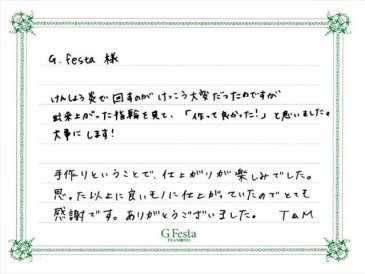 G.festa 様
けんしょう炎で回すのがけっこう大変だったのですが
出来上がった指輪を見て、「作って良かった!」と思いました。
大事にします!
手作りということで、仕上がりが楽しみでした。
思った以上に良いモノに仕上がっていたのでとても
感謝です。ありがとうございました。 T&M
G.Festa
DIAMONDS